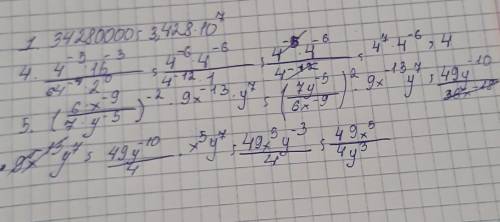 1. 34280000 = 3,428 · 10^7
4. (4^-3 · 16^-3)/(64^-4 · 2^0) = (4^-6 · 4^-6)/(4^-12 · 1) = (4^-5 · 4^-6)/(4^-12) = 4^7 · 4^-6 = 4
5. ((6 · x^-9)/(7 · y^-5))^-2 · 9x^-13 · y^7 = ((7y^-5)/(6x^-9))^2 · 9x^-13 y^7 = (49y^-10)/(36x^-18)
· 9x^-13 y^7 = (49y^-10)/4 · x^5y^7 = (49x^5y^-3)/4 = (49x^5)/(4y^3)